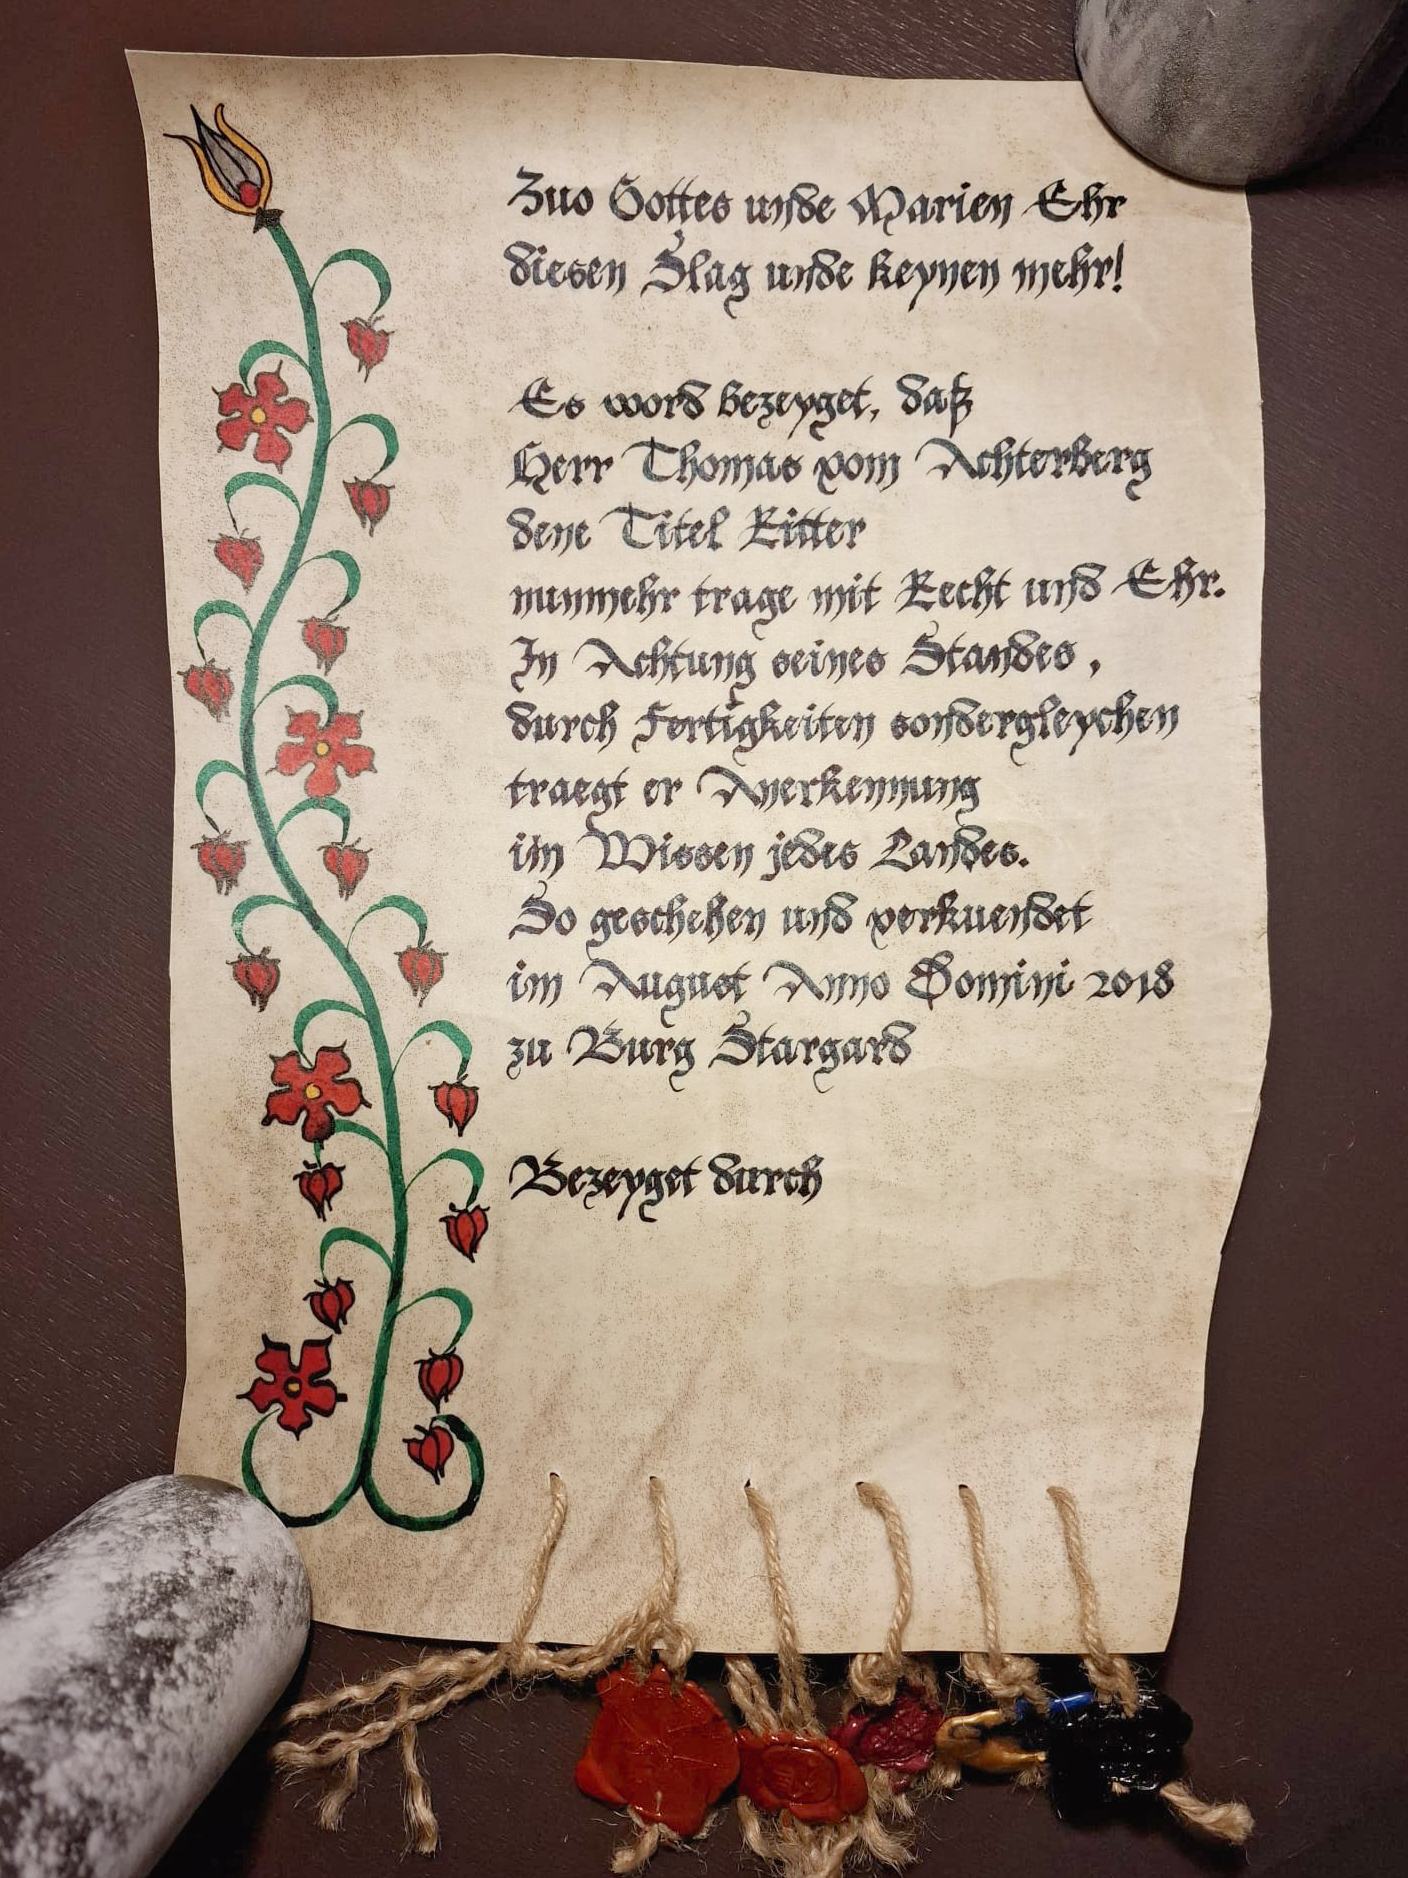 Zuo Gottes unde Marien Ehr
diesen Slag unde keynen mehr!
Es word bezeyget, daß
Herr Thomas vom Achterberg
dene Titel Ritter
nunmehr trage mit Recht und Ehr.
In Achtung seines Standes,
durch Fertigkeiten sondergleychen
traegt er Anerkennung
im Wissen jedes Landes.
So geschehen und verkuendet
im August Anno Domini 2018
zu Burg Stargard
Bezeyget durch